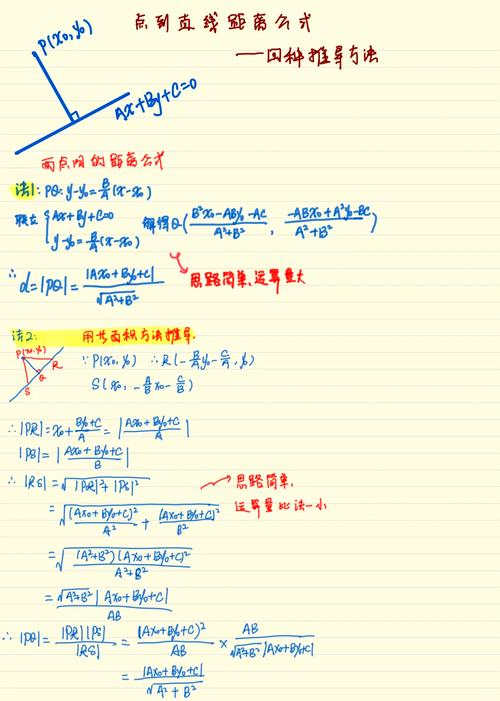 点到直线距离公式
——四种推导方法
P(x₀,y₀)
Ax+By+C=0
两点间的距离公式
法1: PQ: y-y₀=B/A(x-x₀)
联立 { Ax+By+C=0
y-y₀=B/A(x-x₀)
解得Q((B²x₀-ABy₀-AC)/(A²+B²), (-ABx₀+A²y₀-BC)/(A²+B²))
∴ d=|PQ|=|Ax₀+By₀+C|/√(A²+B²)
思路简单,运算量大
法2: 用共面积方法推导.
P(x₀,y₀)
R
Q
S
∵ P(x₀,y₀) ∴ R(-B/A y₀-C/A, y₀)
S(x₀, -A/B x₀-C/B)
∴ |PR|=x₀+(By₀+C)/A=|(Ax₀+By₀+C)/A|
|PS|=|(Ax₀+By₀+C)/B|
∴ |RS|=√(|PR|²+|PS|²)
思路简单,
运算量比法一小
=√((Ax₀+By₀+C)²/A²+(Ax₀+By₀+C)²/B²)
=√((A²+B²)(Ax₀+By₀+C)²/(A²+B²))
=√(A²+B²)|Ax₀+By₀+C|/AB
∴ |PQ|=|PR||PS|/|RS|=(Ax₀+By₀+C)²/AB×AB/(√(A²+B²)|Ax₀+By₀+C|)
=|Ax₀+By₀+C|/√(A²+B²)